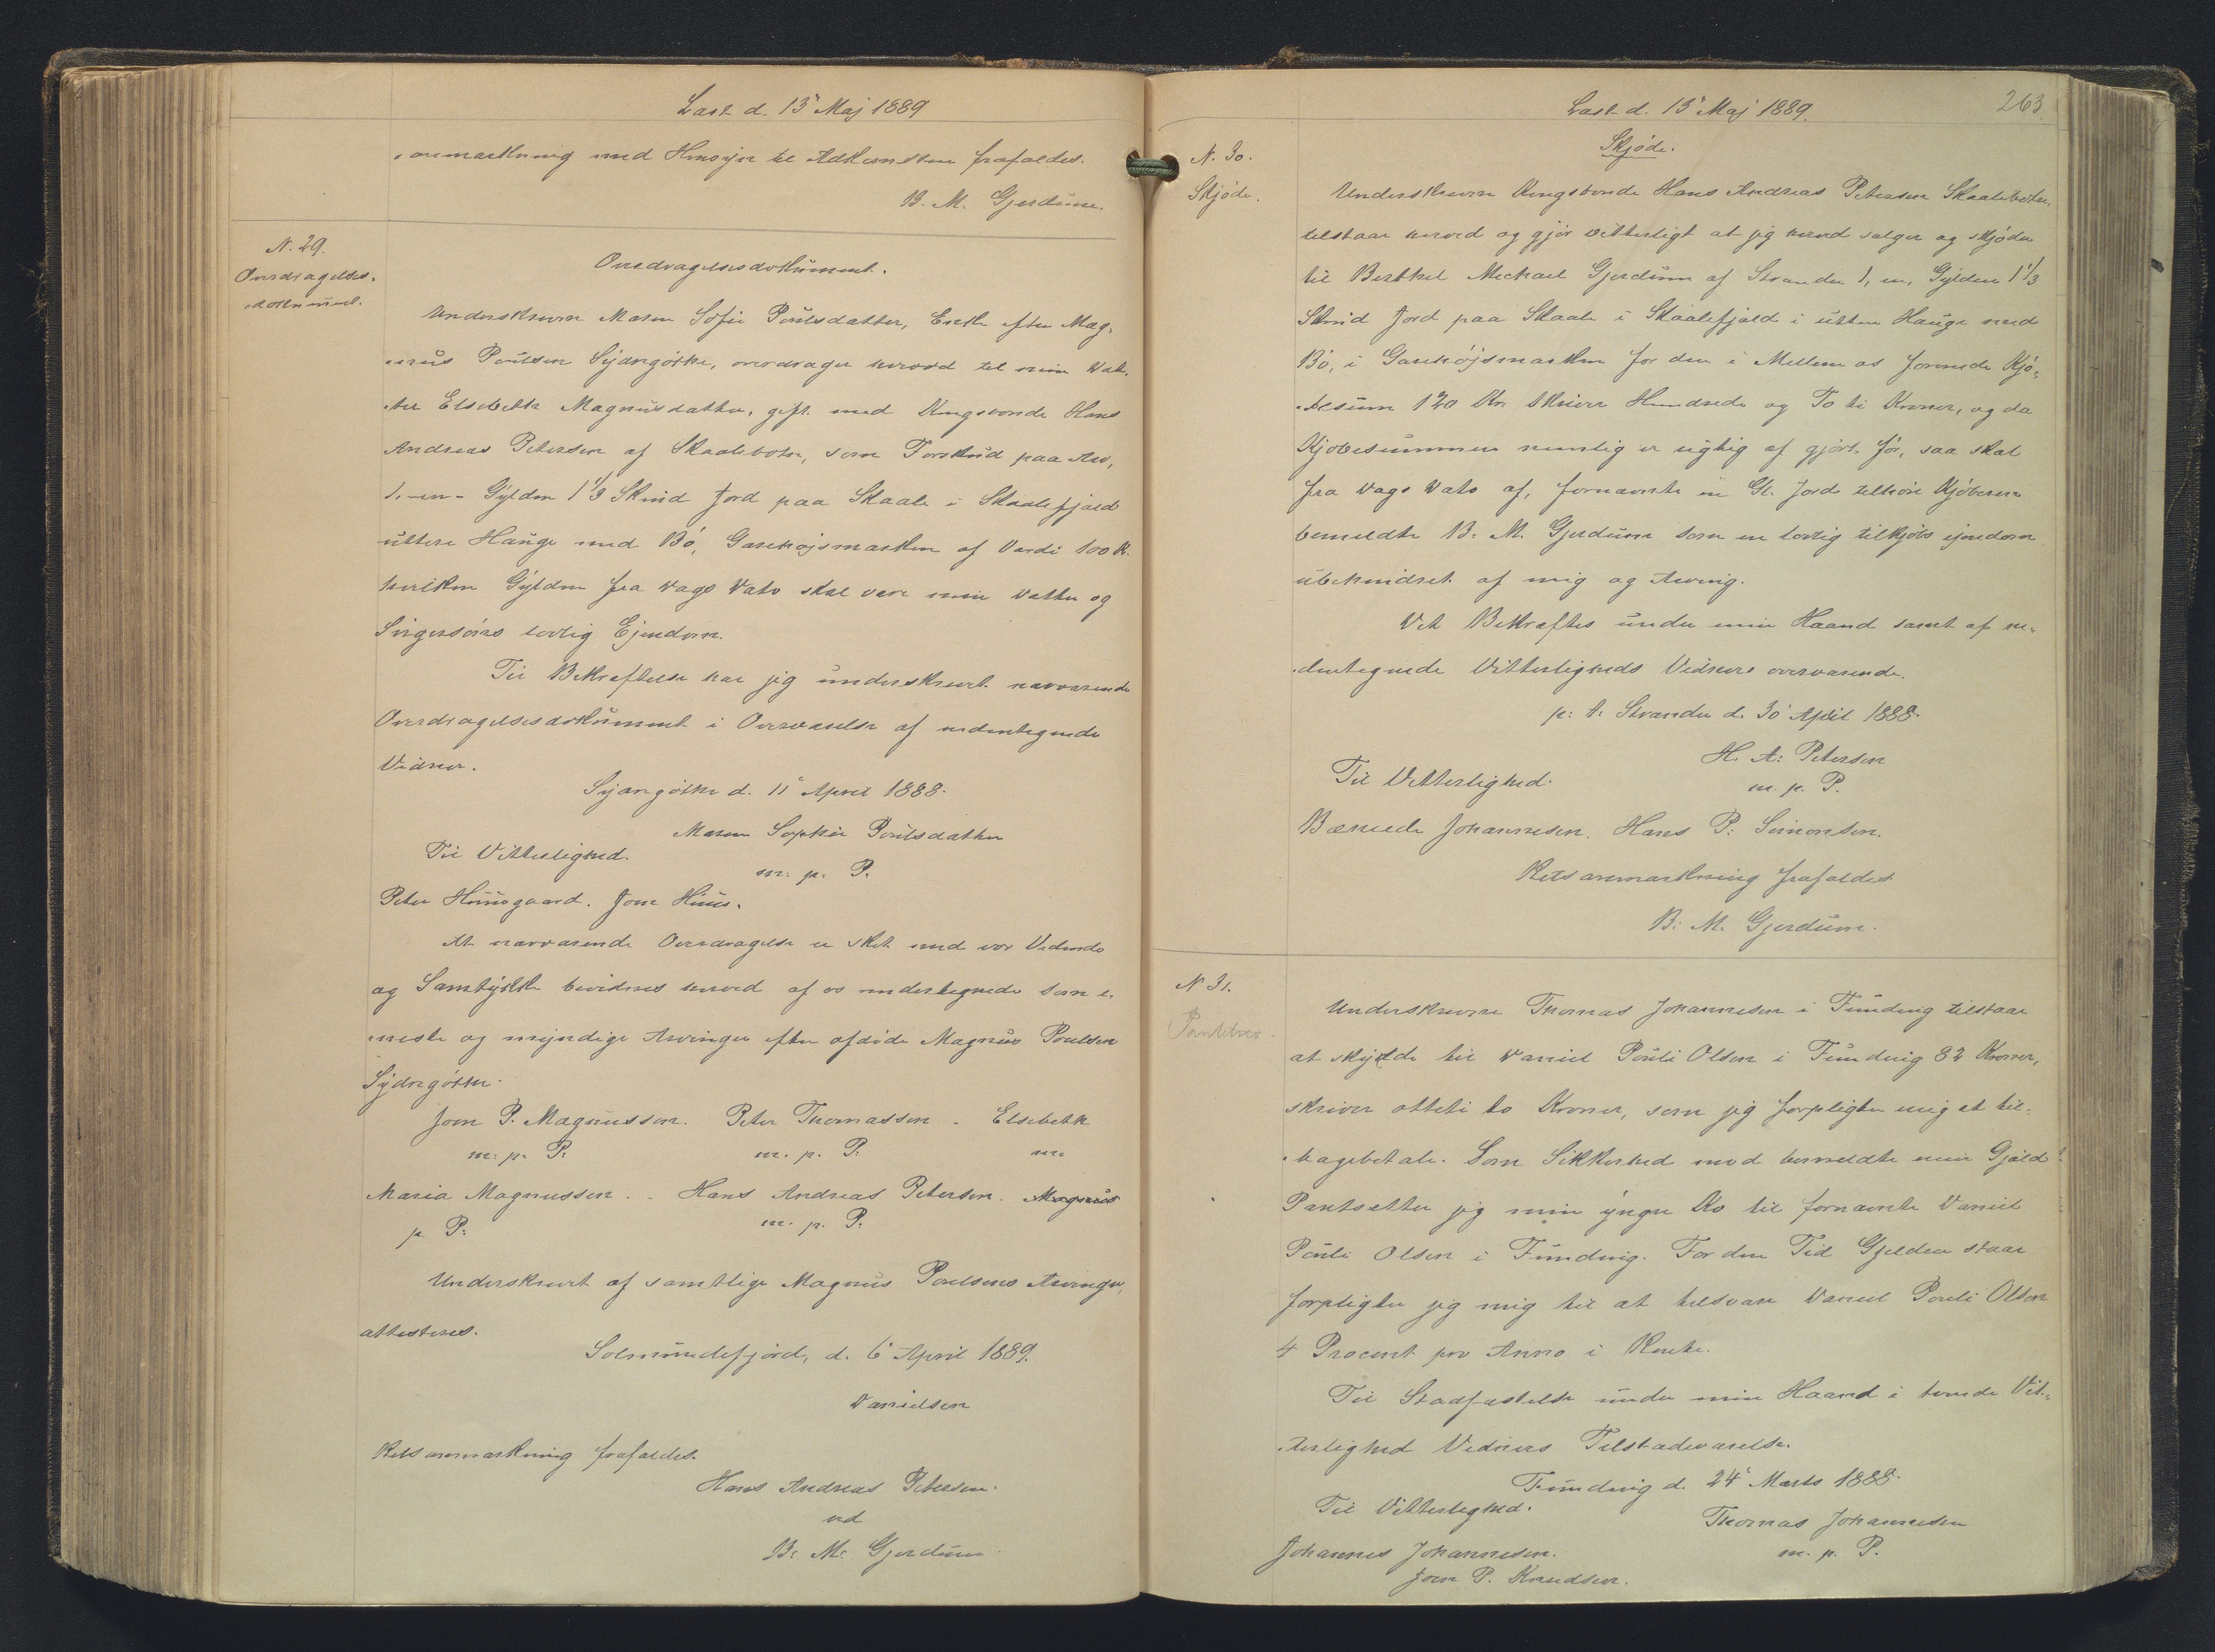 Læst d. 13' Maj 1889
anmærkning med Hensyn til Adkomsten frafaldes.
B. M. Gjerdum.
N. 29.
Overdragelses-
dokument.
Overdragelsesdokument.
Underskreven Maren Sofie Poulsdatter, Enke efter Mag-
nus Poulsen Sydrgöthe, overdrager herved til min Dat-
ter Elsebeth Magnusdatter, gift med Kongsbonde Hans
Andreas Petersen af Skaalebotn, som Forskud paa Arv,
1, -en- Gylden 1 1/3 Skind Jord paa Skaale i Skaalefjæld
uttere Hauge med Bö, Garehøjsmarken af Værdi 100 K.
hvilken Gylden fra Dags Dato skal være min Datter og
Svigersöns lovlig Ejendom.
Til Bekræftelse har jeg underskrevet nærværende
Overdragelsesdokument i Overværelse af nedentegnede
Vidner.
Syðrgöthe d. 11' April 1888.
Maren Sophie Poulsdatter
Til Vitterlighed.
m. p. P.
Peter Huusgaard. Joen Huus.
At nærværende Overdragelse er sket med vor Vidende
og Samtykke bevidnes herved af os undertegnede som e-
neste og myndige Arvinger efter afdöde Magnus Poulsen
Sydrgöthe.
Joen P. Magnussen. Peter Thomassen. Elsebeth
m. p. P. m. p. P. m.
Maria Magnussen. Hans Andreas Petersen. Magnus
p. P. m. p. P.
Underskrevet af samtlige Magnus Poulsens Arvinger,
attesteres.
Solmundefjord, d. 6' April 1889.
Danielsen
Retsanmærkning frafaldes.
Hans Andreas Petersen.
ved
B. M. Gjerdum
263
Læst d. 13' Maj 1889.
N. 30.
Skjöde.
Skjöde.
Underskreven Kongsbonde Hans Andreas Petersen Skaalebotn,
tilstaar herved og gjör vitterligt at jeg herved sælger og skjöder
til Berthel Michael Gjerdum af Strander 1, en, Gylden 1 1/3
Skind Jord paa Skaale i Skaalefjæld i utten Hauge med
Bö, i Garehöjsmarken for den i Mellem os forenede Kjö-
besum 120 Kr. skriver Hundrede og To ti Kroner, og da
Kjöbesummen nemlig er rigtig af gjört för, saa skal
fra Dags Dato af, fornævnte en Gl. Jord tilhöre Kjöberen
bemeldte B. M. Gjerdum som en lovlig tilkjöbt ejendom
ubehindret af mig og Arving.
Det Bekræftes under min Haand samt af ne-
dentegnede Vitterligheds Vidners overværende.
p: t: Strander d. 30' April 1888.
H. A: Petersen
Til Vitterlighed.
m. p. P.
Johannesen. Hans P: Simonsen.
Retsanmærkning frafaldes
B: M. Gjerdum.
N 31.
Pantebrev
Underskreven Thomas Johannesen i Funding tilstaar
at skylde til Daniel Pouli Olsen i Funding 82 Kroner,
skriver otteti to Kroner, som jeg forpligter mig at til-
bagebetale. Som Sikkerhed mod bemeldte min Gjæld
Pantsætter jeg min yngre Ko til fornævnte Daniel
Pouli Olsen i Funding. For den Tid Gjelden staar
forpligter jeg mig til at tilsvare Daniel Pouli Olsen
4 Procent pro Anno i Rente.
Til Stadfæstelse under min Haand i tvende Vit-
terlighed Vidners Tilstædeværelse.
Funding d. 24' Marts 1888.
Til Vitterlighed.
Thomas Johannesen
Johannes Johannesen.
m. p. P.
Joen P. Knudsen.